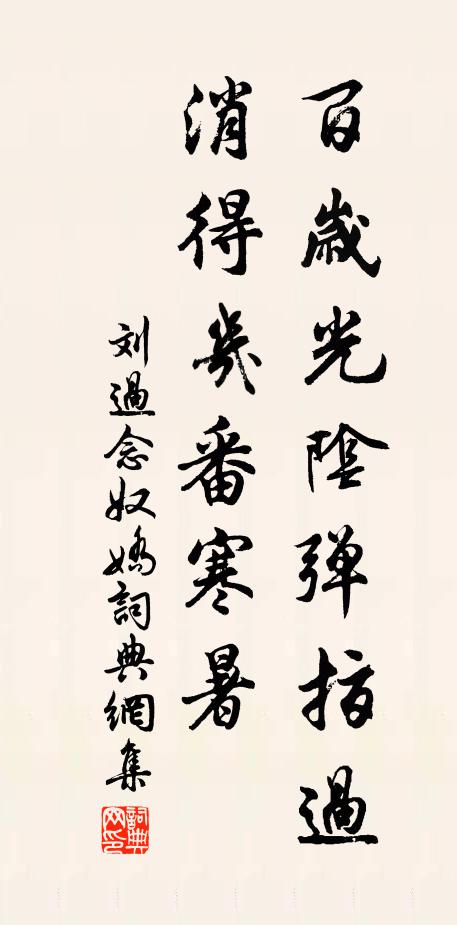 百歲光陰彈指過
消得幾番寒暑
刘過念奴嬌詞典網集
詞典網印